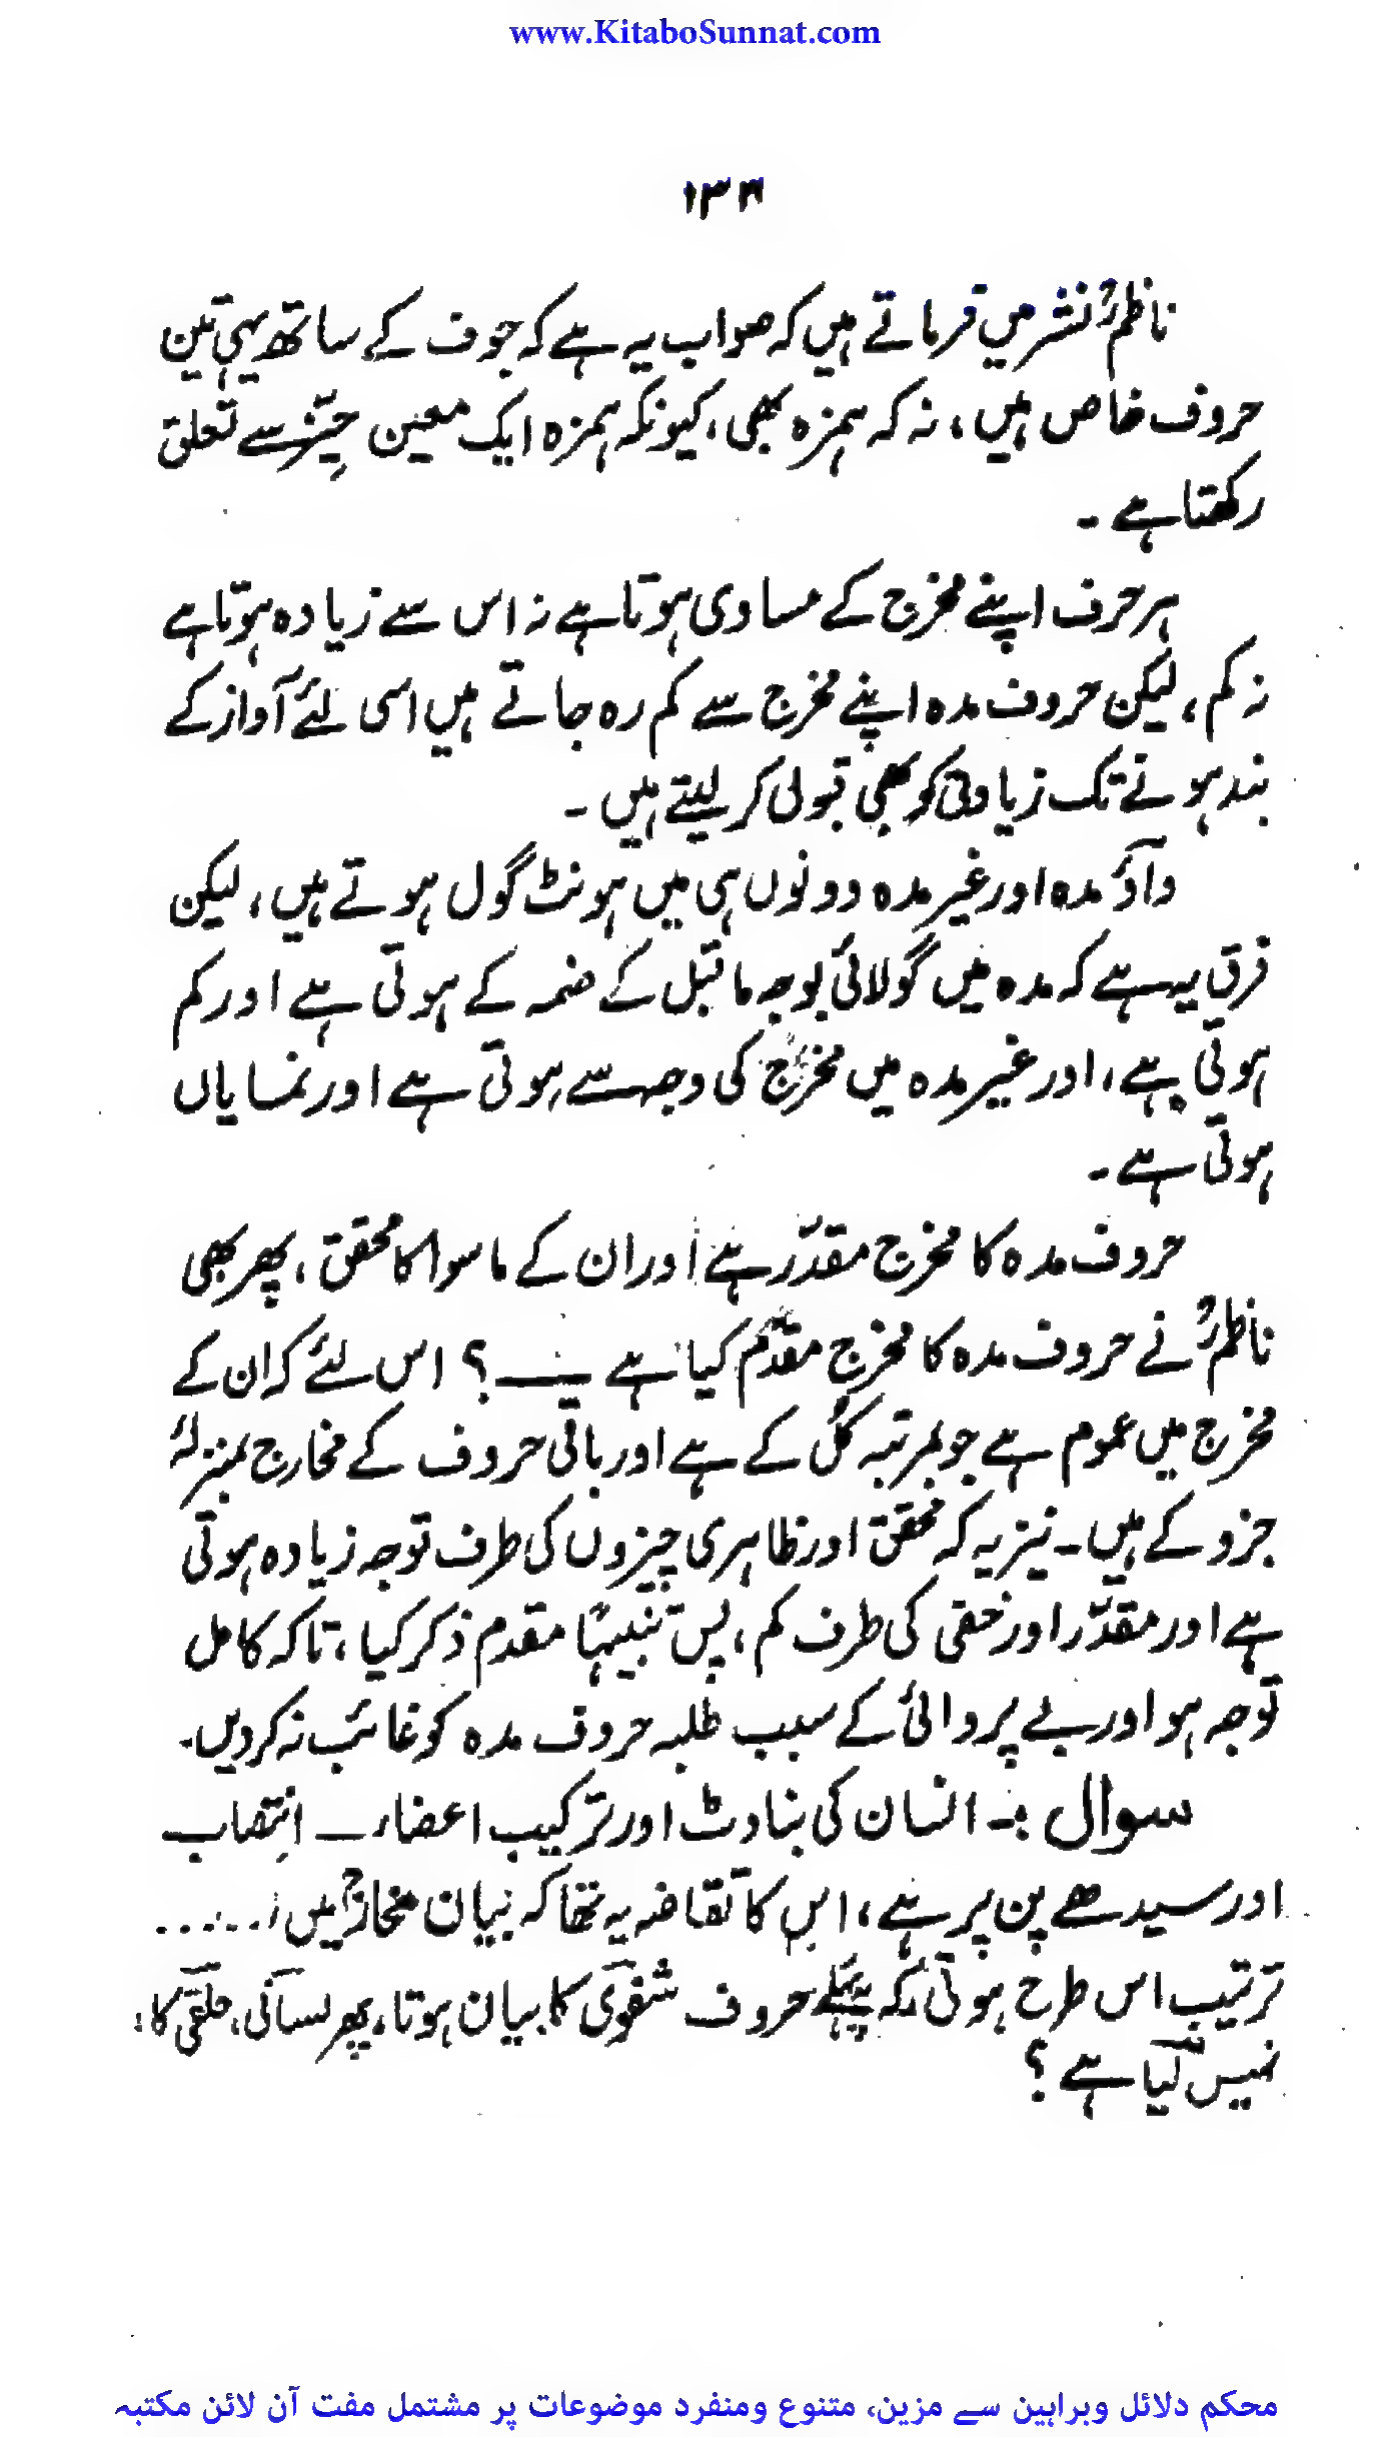 www.KitaboSunnat.com
ناظمؒ نشر میں فرماتے ہیں کہ صواب یہ ہے کہ جوف کے ساتھ یہی تین
حروف خاص ہیں، نہ کہ ہمزہ بھی، کیونکہ ہمزہ ایک معین حِیّز سے تعلق
رکھتا ہے ۔
ہر حرف اپنے مخرج کے مساوی ہوتا ہے نہ اس سے زیادہ ہوتا ہے
نہ کم، لیکن حروف مدہ اپنے مخرج سے کم رہ جاتے ہیں اسی لئے آواز کے
بند ہونے تک زیادتی کو بھی قبول کر لیتے ہیں ۔
واؤ مدہ اور غیر مدہ دونوں ہی میں ہونٹ گول ہوتے ہیں، لیکن
فرق یہ ہے کہ مدہ میں گولائی بوجہ ماقبل کے ضمہ کے ہوتی ہے اور کم
ہوتی ہے، اور غیر مدہ میں مخرج کی وجہ سے ہوتی ہے اور نمایاں
ہوتی ہے ۔
حروف مدہ کا مخرج مقدّر ہے اور ان کے ماسوا کا محقق، پھر بھی
ناظمؒ نے حروف مدہ کا مخرج مقدّم کیا ہے ــــ؟ اس لئے کہ ان کے
مخرج میں عموم ہے جو بمرتبہ کُل کے ہے اور باقی حروف کے مخارج بمنزلۂ
جزو کے ہیں۔ نیز یہ کہ محقق اور ظاہری چیزوں کی طرف توجہ زیادہ ہوتی
ہے اور مقدّر اور خفی کی طرف کم، پس تنبیہًا مقدم ذکر کیا، تاکہ کامل
توجہ ہو اور بے پروائی کے سبب طلبہ حروف مدہ کو غائب نہ کر دیں۔
سوال :۔ انسان کی بناوٹ اور ترکیب اعضاء ــ اِنتصاب
اور سیدھے پن پر ہے، اس کا تقاضہ یہ تھا کہ بیان مخارج میں .....
ترتیب اس طرح ہوتی کہ پہلے حروف شفوی کا بیان ہوتا، پھر لسانی، حلقی کا،
نہیں کیا ہے ؟
محکم دلائل وبراہین سے مزین، متنوع ومنفرد موضوعات پر مشتمل مفت آن لائن مکتبہ